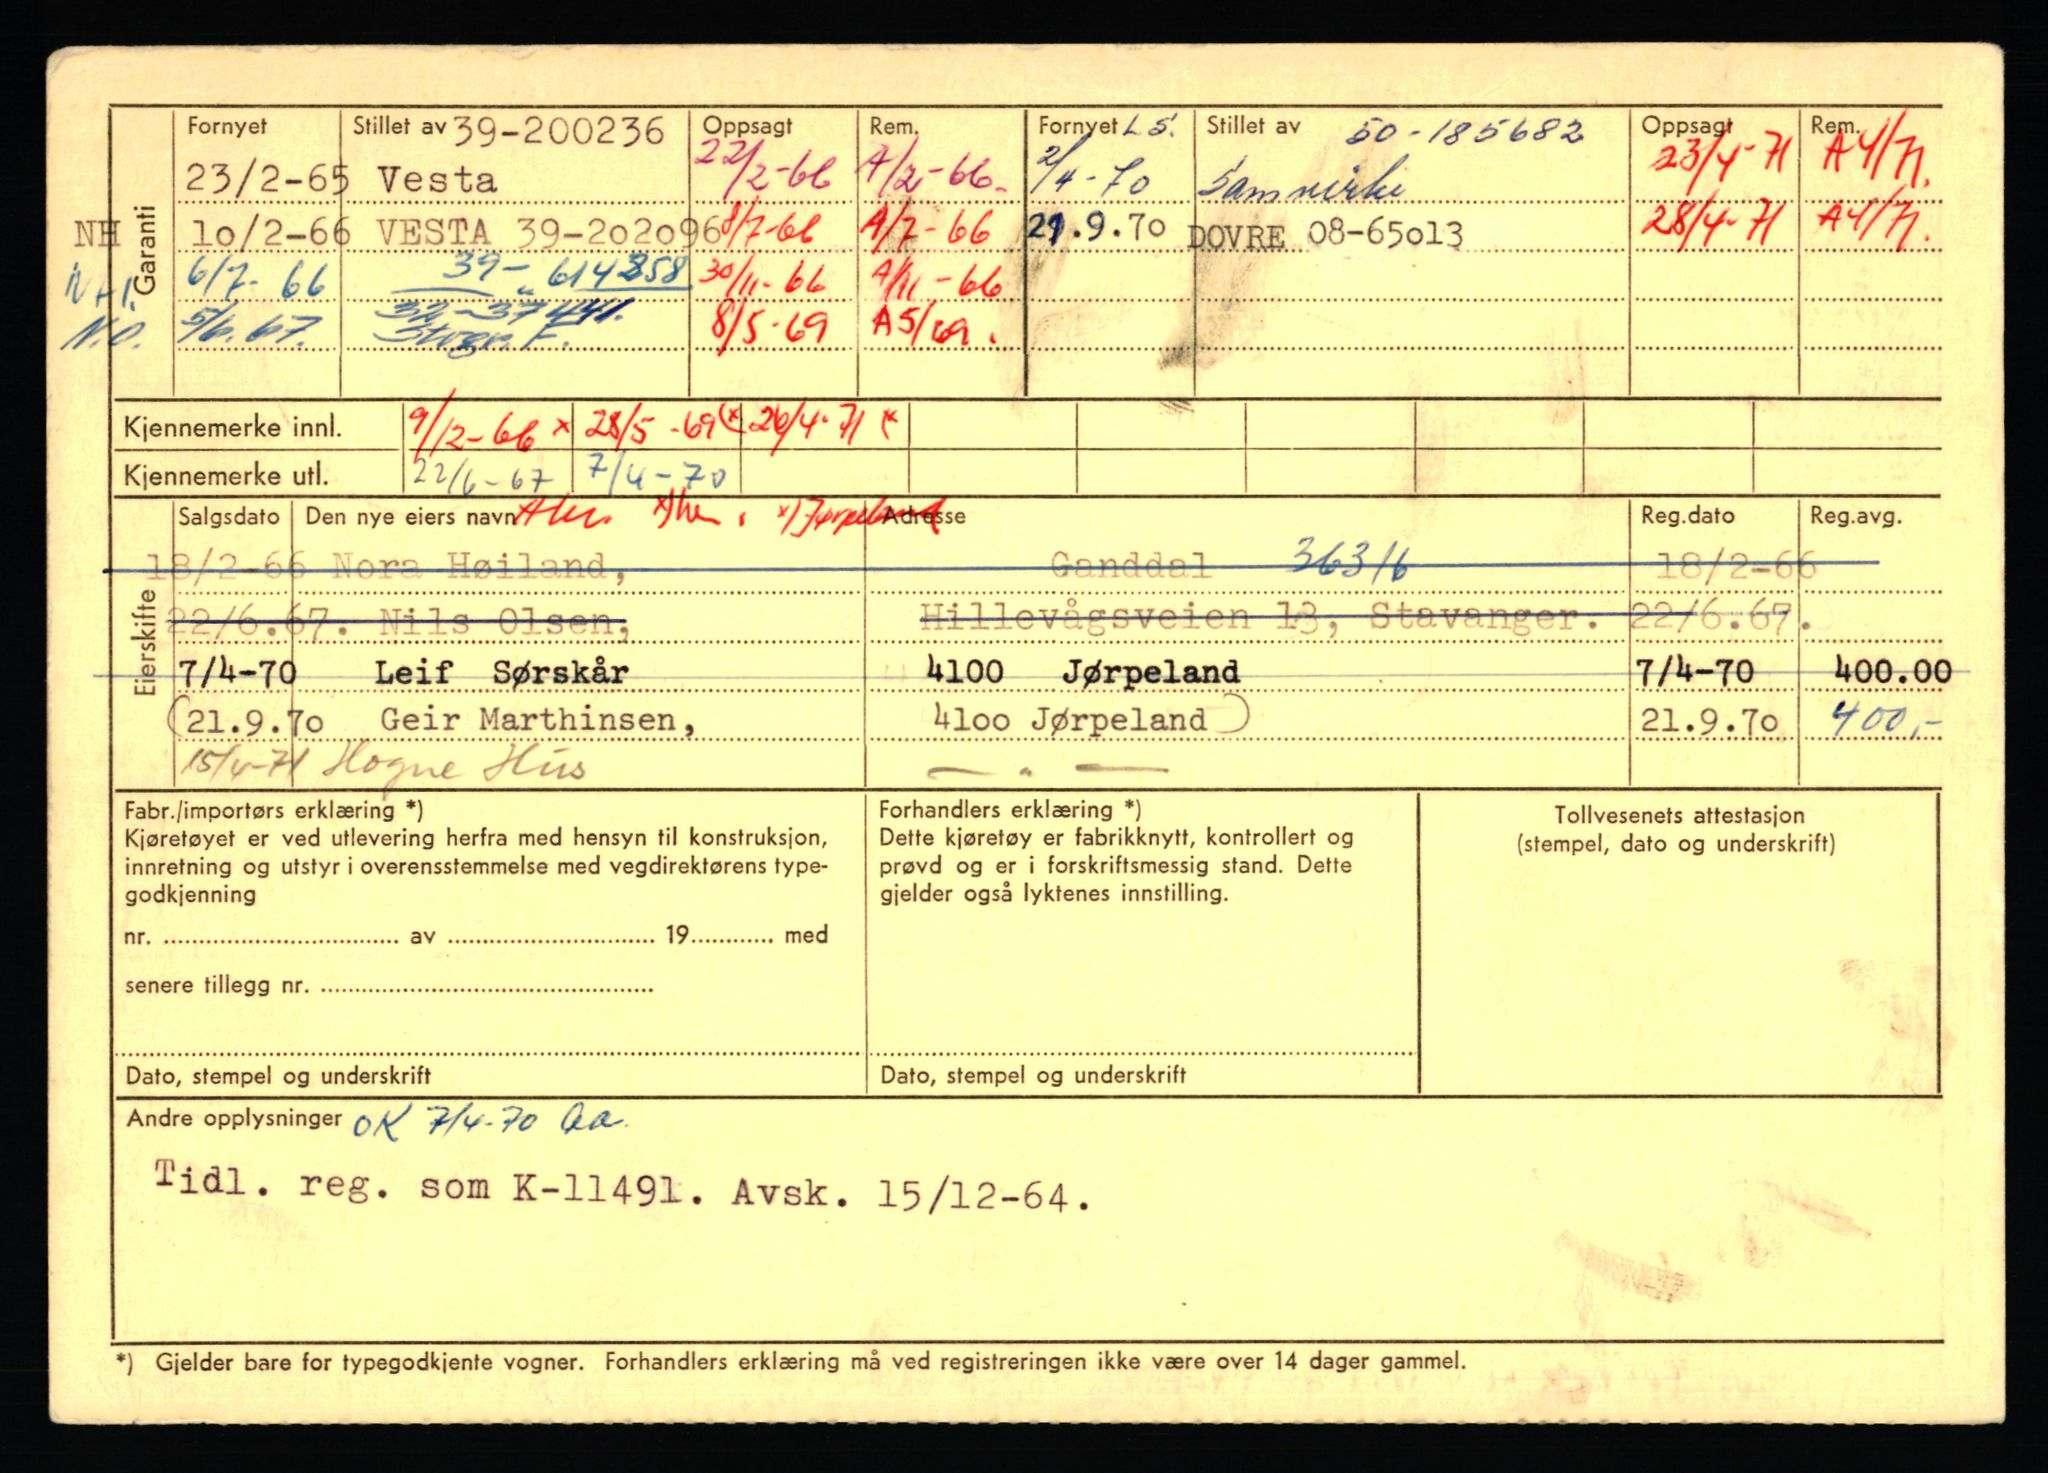 Garanti
Fornyet Stillet av 39-200236 Oppsagt Rem. Fornyet L S. Stillet av 50-185682 Oppsagt Rem.
23/2-65 Vesta 22/2-66 A/2-66. 2/4-70 Samvirke 23/4-71 A4/71.
NH 10/2-66 VESTA 39-202096 8/7-66 A/7-66 21.9.70 DOVRE 08-65013 28/4-71 A4/71.
N.H. 6/7-66 39-614258 30/11-66 A/11-66
N.O. 5/6.67. 39-37441. 8/5-69 A5/69.
Kjennemerke innl. 9/12-66 x 28/5-69 (x 26/4-71 (x
Kjennemerke utl. 22/6-67 7/4-70
Eierskifte
Salgsdato Den nye eiers navn x) Jørpeland Adresse Reg.dato Reg.avg.
18/2-66 Nora Høiland, Ganddal 36316 18/2-66
22/6.67. Nils Olsen, Hillevågsveien 13, Stavanger. 22/6.67.
7/4-70 Leif Sørskår 4100 Jørpeland 7/4-70 400.00
(21.9.70 Geir Marthinsen, 4100 Jørpeland) 21.9.70 400,-
15/4-71 Hogne Hus — " —
Fabr./importørs erklæring *)
Kjøretøyet er ved utlevering herfra med hensyn til konstruksjon,
innretning og utstyr i overensstemmelse med vegdirektørens type-
godkjenning
nr. .......... av .......... 19.......... med
senere tillegg nr. ..........
Dato, stempel og underskrift
Forhandlers erklæring *)
Dette kjøretøy er fabrikknytt, kontrollert og
prøvd og er i forskriftsmessig stand. Dette
gjelder også lyktenes innstilling.
Dato, stempel og underskrift
Tollvesenets attestasjon
(stempel, dato og underskrift)
Andre opplysninger OK 7/4-70 Aa.
Tidl. reg. som K-11491. Avsk. 15/12-64.
*) Gjelder bare for typegodkjente vogner. Forhandlers erklæring må ved registreringen ikke være over 14 dager gammel.